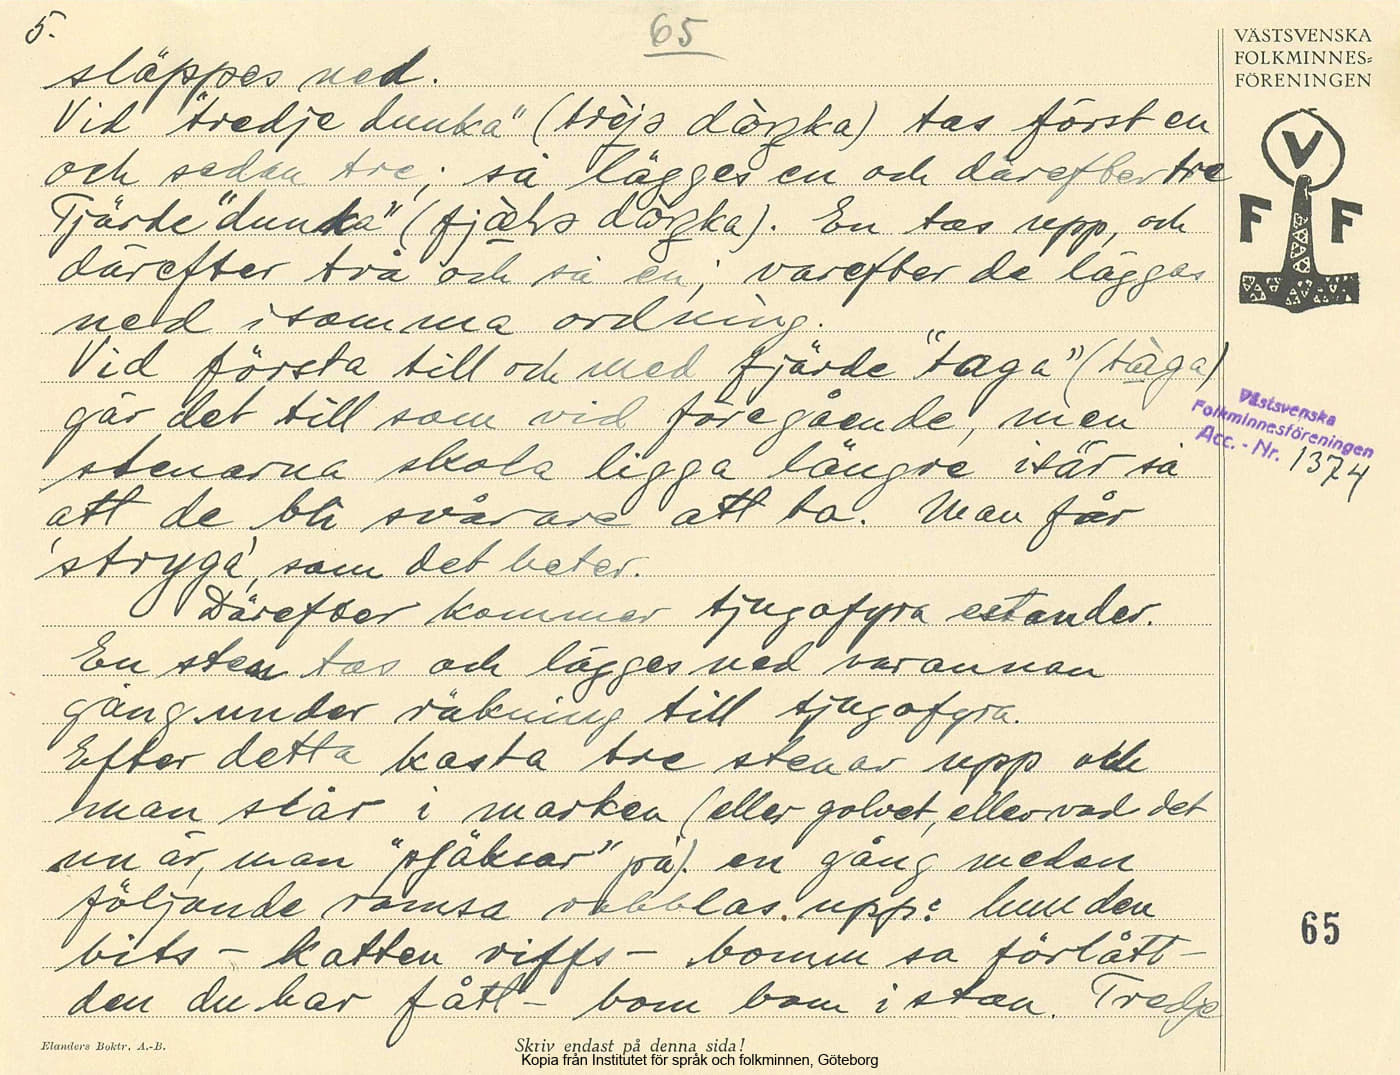 5.
65
VÄSTSVENSKA
FOLKMINNES=
FÖRENINGEN
V
F F
släppes ned.
Vid "tredje dunka" (trèjə dàŋka) tas först en
och sedan tre; så lägges en och därefter tre
Fjärde "dunka" (fjæ̀ɖə dàŋka). En tas upp, och
därefter två och så en; varefter de läggas
ned i samma ordning.
Vid första till och med fjärde "taga" (tàga)
går det till som vid föregående, men
stenarna skola ligga längre isär så
att de bli svårare att ta. Man får
'stryga', som det heter.
Därefter kommer tjugofyra estander.
En sten tas och lägges ned varannan
gång under räkning till tjugofyra.
Efter detta kasta tre stenar upp och
man slår i marken (eller golvet, eller vad det
nu är, man "pjäksar" på). en gång medan
följande ramsa rabblas upp: hunden
bits – katten riffs – bomm sa förlått –
den du har fått – bom bom i stan. Tredje
Västsvenska
Folkminnesföreningen
Acc. - Nr. 1374
65
Elanders Boktr. A.-B.
Skriv endast på denna sida!
Kopia från Institutet för språk och folkminnen, Göteborg